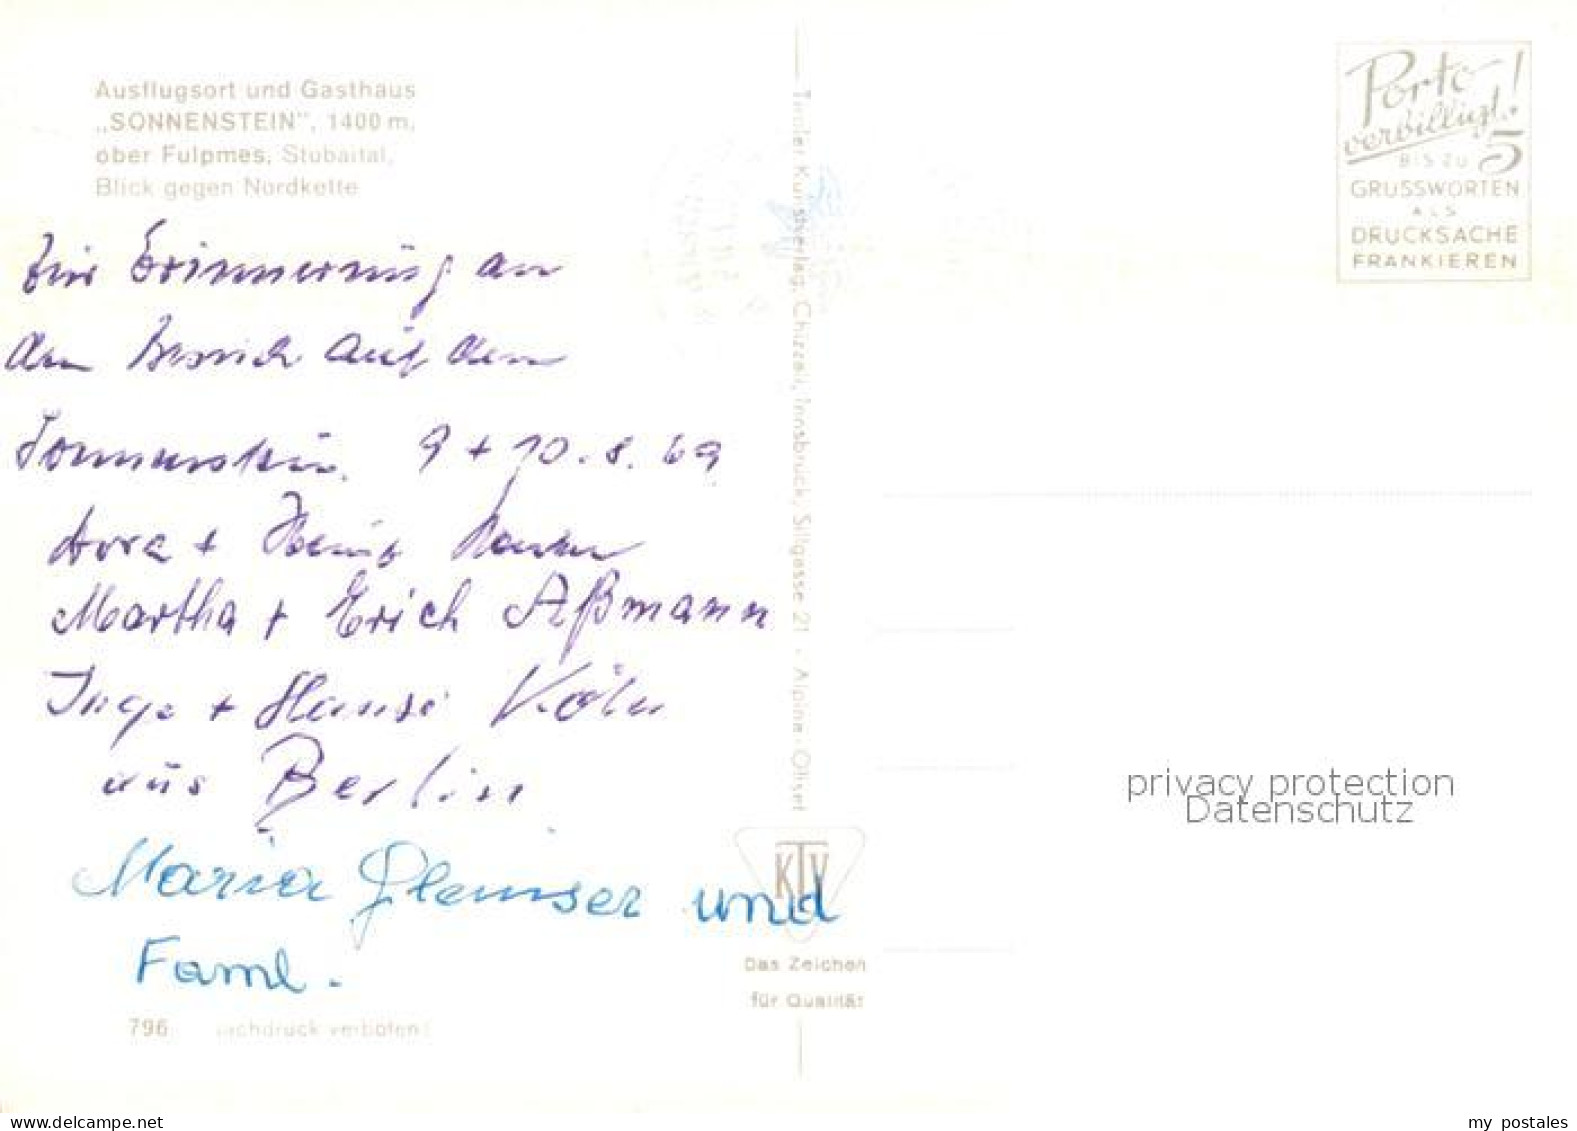 Ausflugsort und Gasthaus
„SONNENSTEIN", 1400 m,
ober Fulpmes, Stubaital,
Blick gegen Nordkette
Zur Erinnerung an
den Besuch auf dem
Sonnenstein. 9 + 10.8.69
Dora + Heinz
Martha + Erich Aßmann
Inge + Hansi Köln
aus Berlin
Maria Glemser und
Faml.
796 Nachdruck verboten!
Tiroler Kunstverlag, Chizzali, Innsbruck, Sillgasse 21 · Alpina-Offset
KTV
Das Zeichen
für Qualität
Porto
verbilligt!
BIS ZU 5
GRUSSWORTEN
ALS
DRUCKSACHE
FRANKIEREN
privacy protection
Datenschutz
www.delcampe.net
my_postales